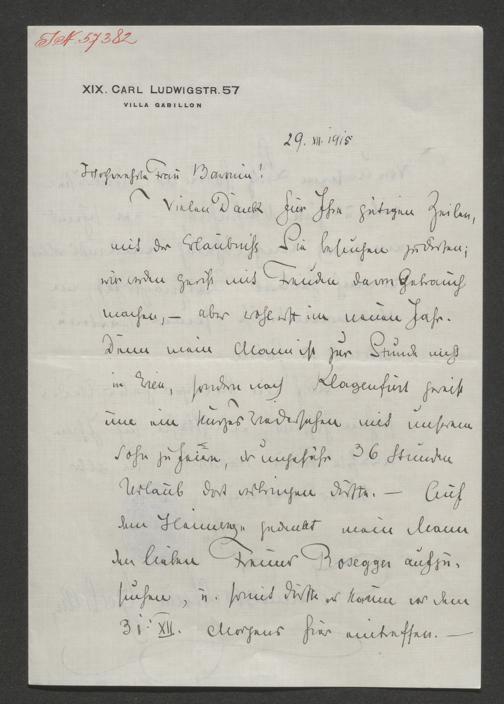 I.N. 57382
XIX. CARL LUDWIGSTR. 57
VILLA GABILLON
29. XII. 1915
Hochverehrte Frau Baronin!
Vielen Dank für Ihre gütigen Zeilen,
mit der Erlaubniß Sie besuchen zu dürfen;
wir werden gewiß mit Freuden davon Gebrauch
machen, – aber wohl erst im neuen Jahr.
Denn mein Mann ist zur Stunde nicht
in Wien, sondern nach Klagenfurt gereist
um ein kurzes Wiedersehen mit unserem
Sohn zu feiern, der ungefähr 36 Stunden
Urlaub dort verbringen dürfte. – Auf
dem Heimwege gedenkt mein Mann
den lieben Freund Rosegger aufzu-
suchen, u. somit dürfte er kaum vor dem
31. XII. Morgens hier eintreffen. –